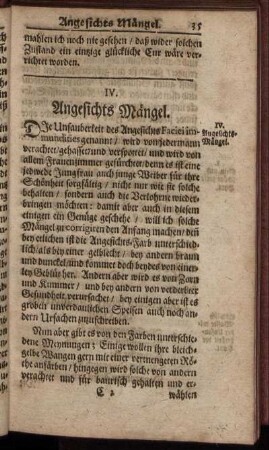 Angesichts Mängel. 35
mahlen ich noch nie gesehen / daß wider solchen
Zustand ein einzige glückliche Cur wäre ver-
richtet worden.
IV.
Angesichts Mängel.
DJe Unsauberkeit des Angesichts Faciei im-
mundities genannt / wird von jedermann
verachtet / gehasset und verspottet / und wird von
allem Frauenzimmer gefürchtet / denn es ist eine
jedwede Jungfrau auch junge Weiber für ihre
Schönheit sorgfältig / nicht nur wie sie solche
behalten / sondern auch die Verlohrne wieder-
bringen möchten: damit aber auch in diesem
einigen ein Genüge geschehe / will ich solche
Mängel zu corrigiren den Anfang machen / den
bey etlichen ist die Angesichts-Farb unterschied-
lich / als bey einer gelblecht / bey andern braun
und dunckel / und kommt doch beydes von einer-
ley Geblüt her. Andern aber wird es von Zorn
und Kummer / und bey andern von verderbter
Gesundheit verursachet / bey einigen aber ist es
grober unverdaulichen Speisen auch noch an-
dern Ursachen zuzuschreiben.
Nun aber gibt es von den Farben unterschie-
dene Meynungen: Einige wollen ihre bleich-
gelbe Wangen gern mit einer vermengeten Rö-
the anfärben / hingegen wird solche von andern
verachtet und für bäurisch gehalten und er-
C 2 wählen
IV.
Angesichts-
Mängel.